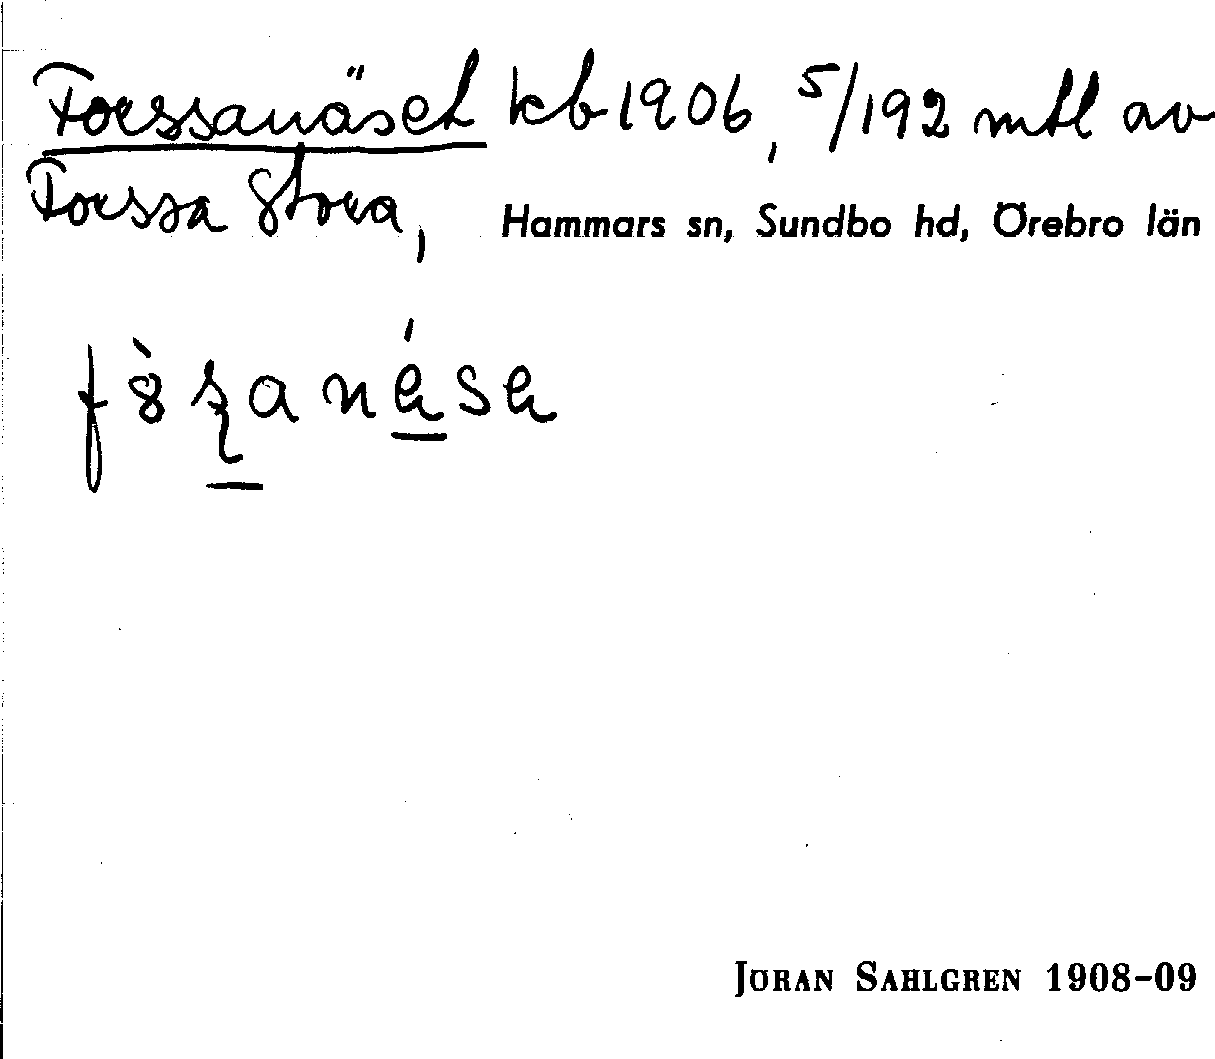 Forssanäset kb 1906, 5/192 mtl av
Forssa Stora, Hammars sn, Sundbo hd, Örebro län
JÖRAN SAHLGREN 1908-09